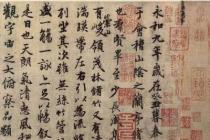 永和九年歲在癸丑暮
會稽山陰之蘭
也群賢畢至少長
有峻領茂林脩竹又有
湍暎帶左右引以為
列坐其次雖無絲竹管
盛一觴一詠亦足以暢敘
是日也天朗氣清惠風
觀宇宙之大俯察品類